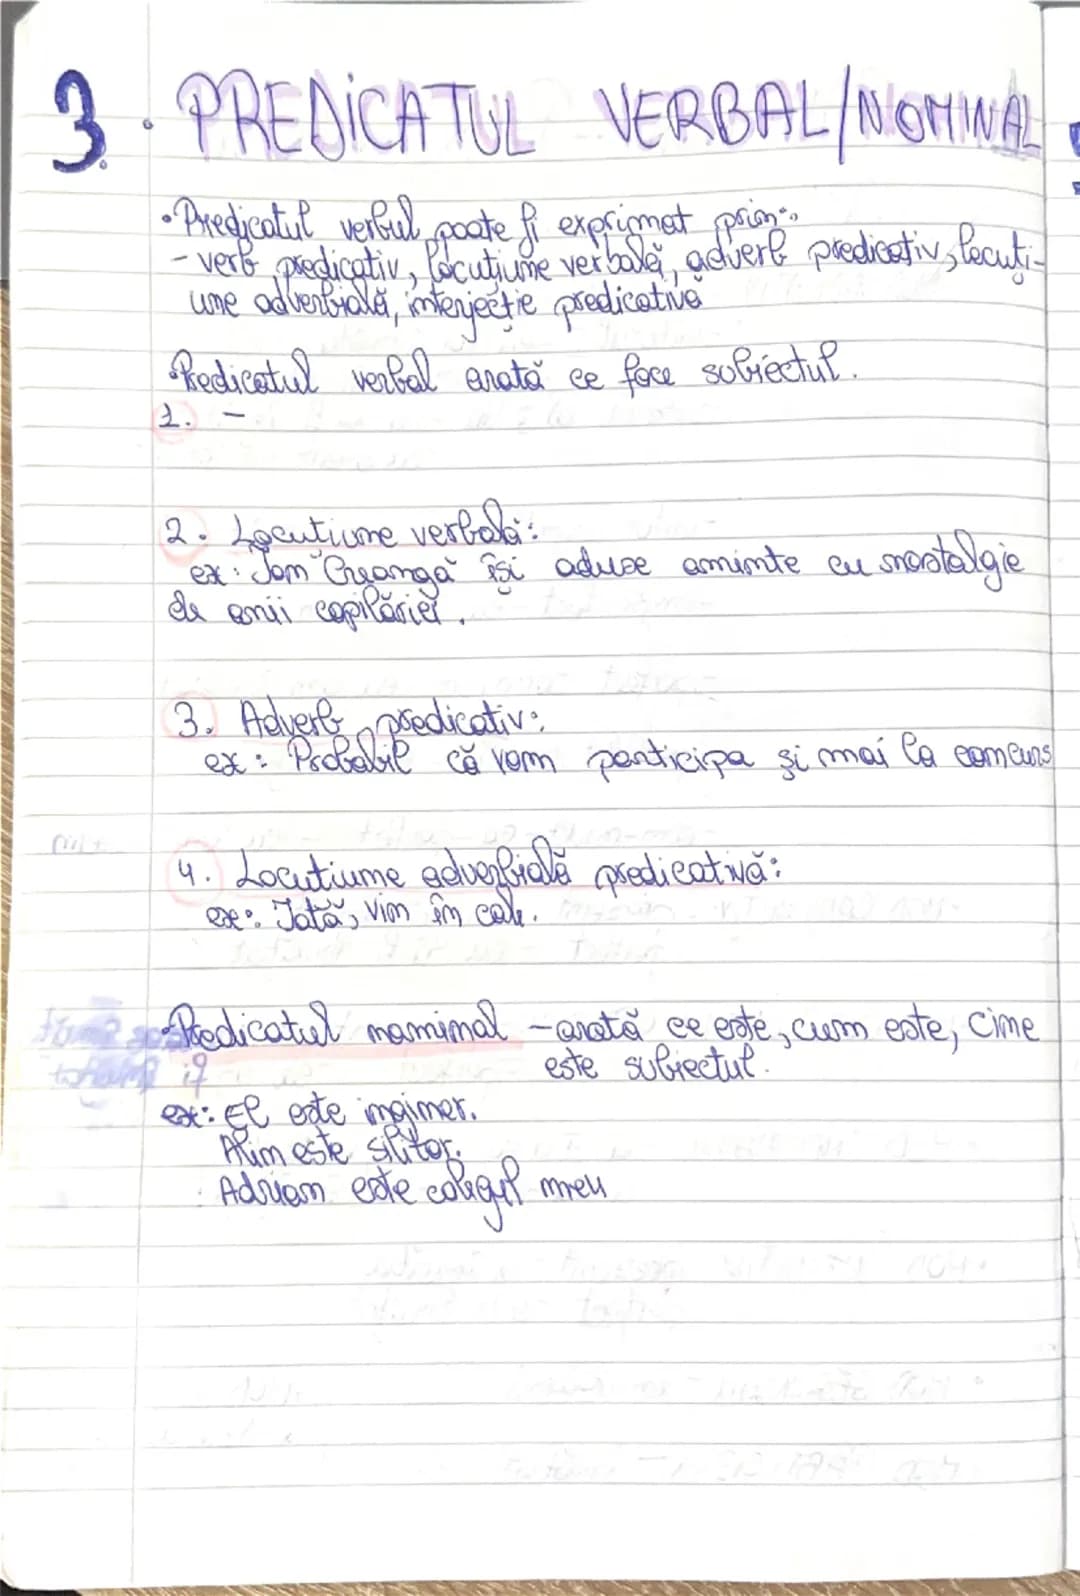 3. PREDICATUL VERBAL/NOMINAL
• Predicatul verbul poate fi exprimat prin:
- verb predicativ, locuțiune verbală, adverb predicativ, locuți-
une adverbială, interjecție predicativă
• Predicatul verbal arată ce face subiectul.
1. -
2. Locuțiune verbală:
ex: Ion Creangă își aduse aminte cu nostalgie
de anii copilăriei.
3. Adverb predicativ:
ex: Probabil că vom participa și mai la concurs
4. Locuțiune adverbială predicativă:
ex: Iată, vin în cale.
• Predicatul nominal - arată ce este, cum este, cine
este subiectul.
ex: El este inginer.
Alin este silitor.
Adrian este colegul meu